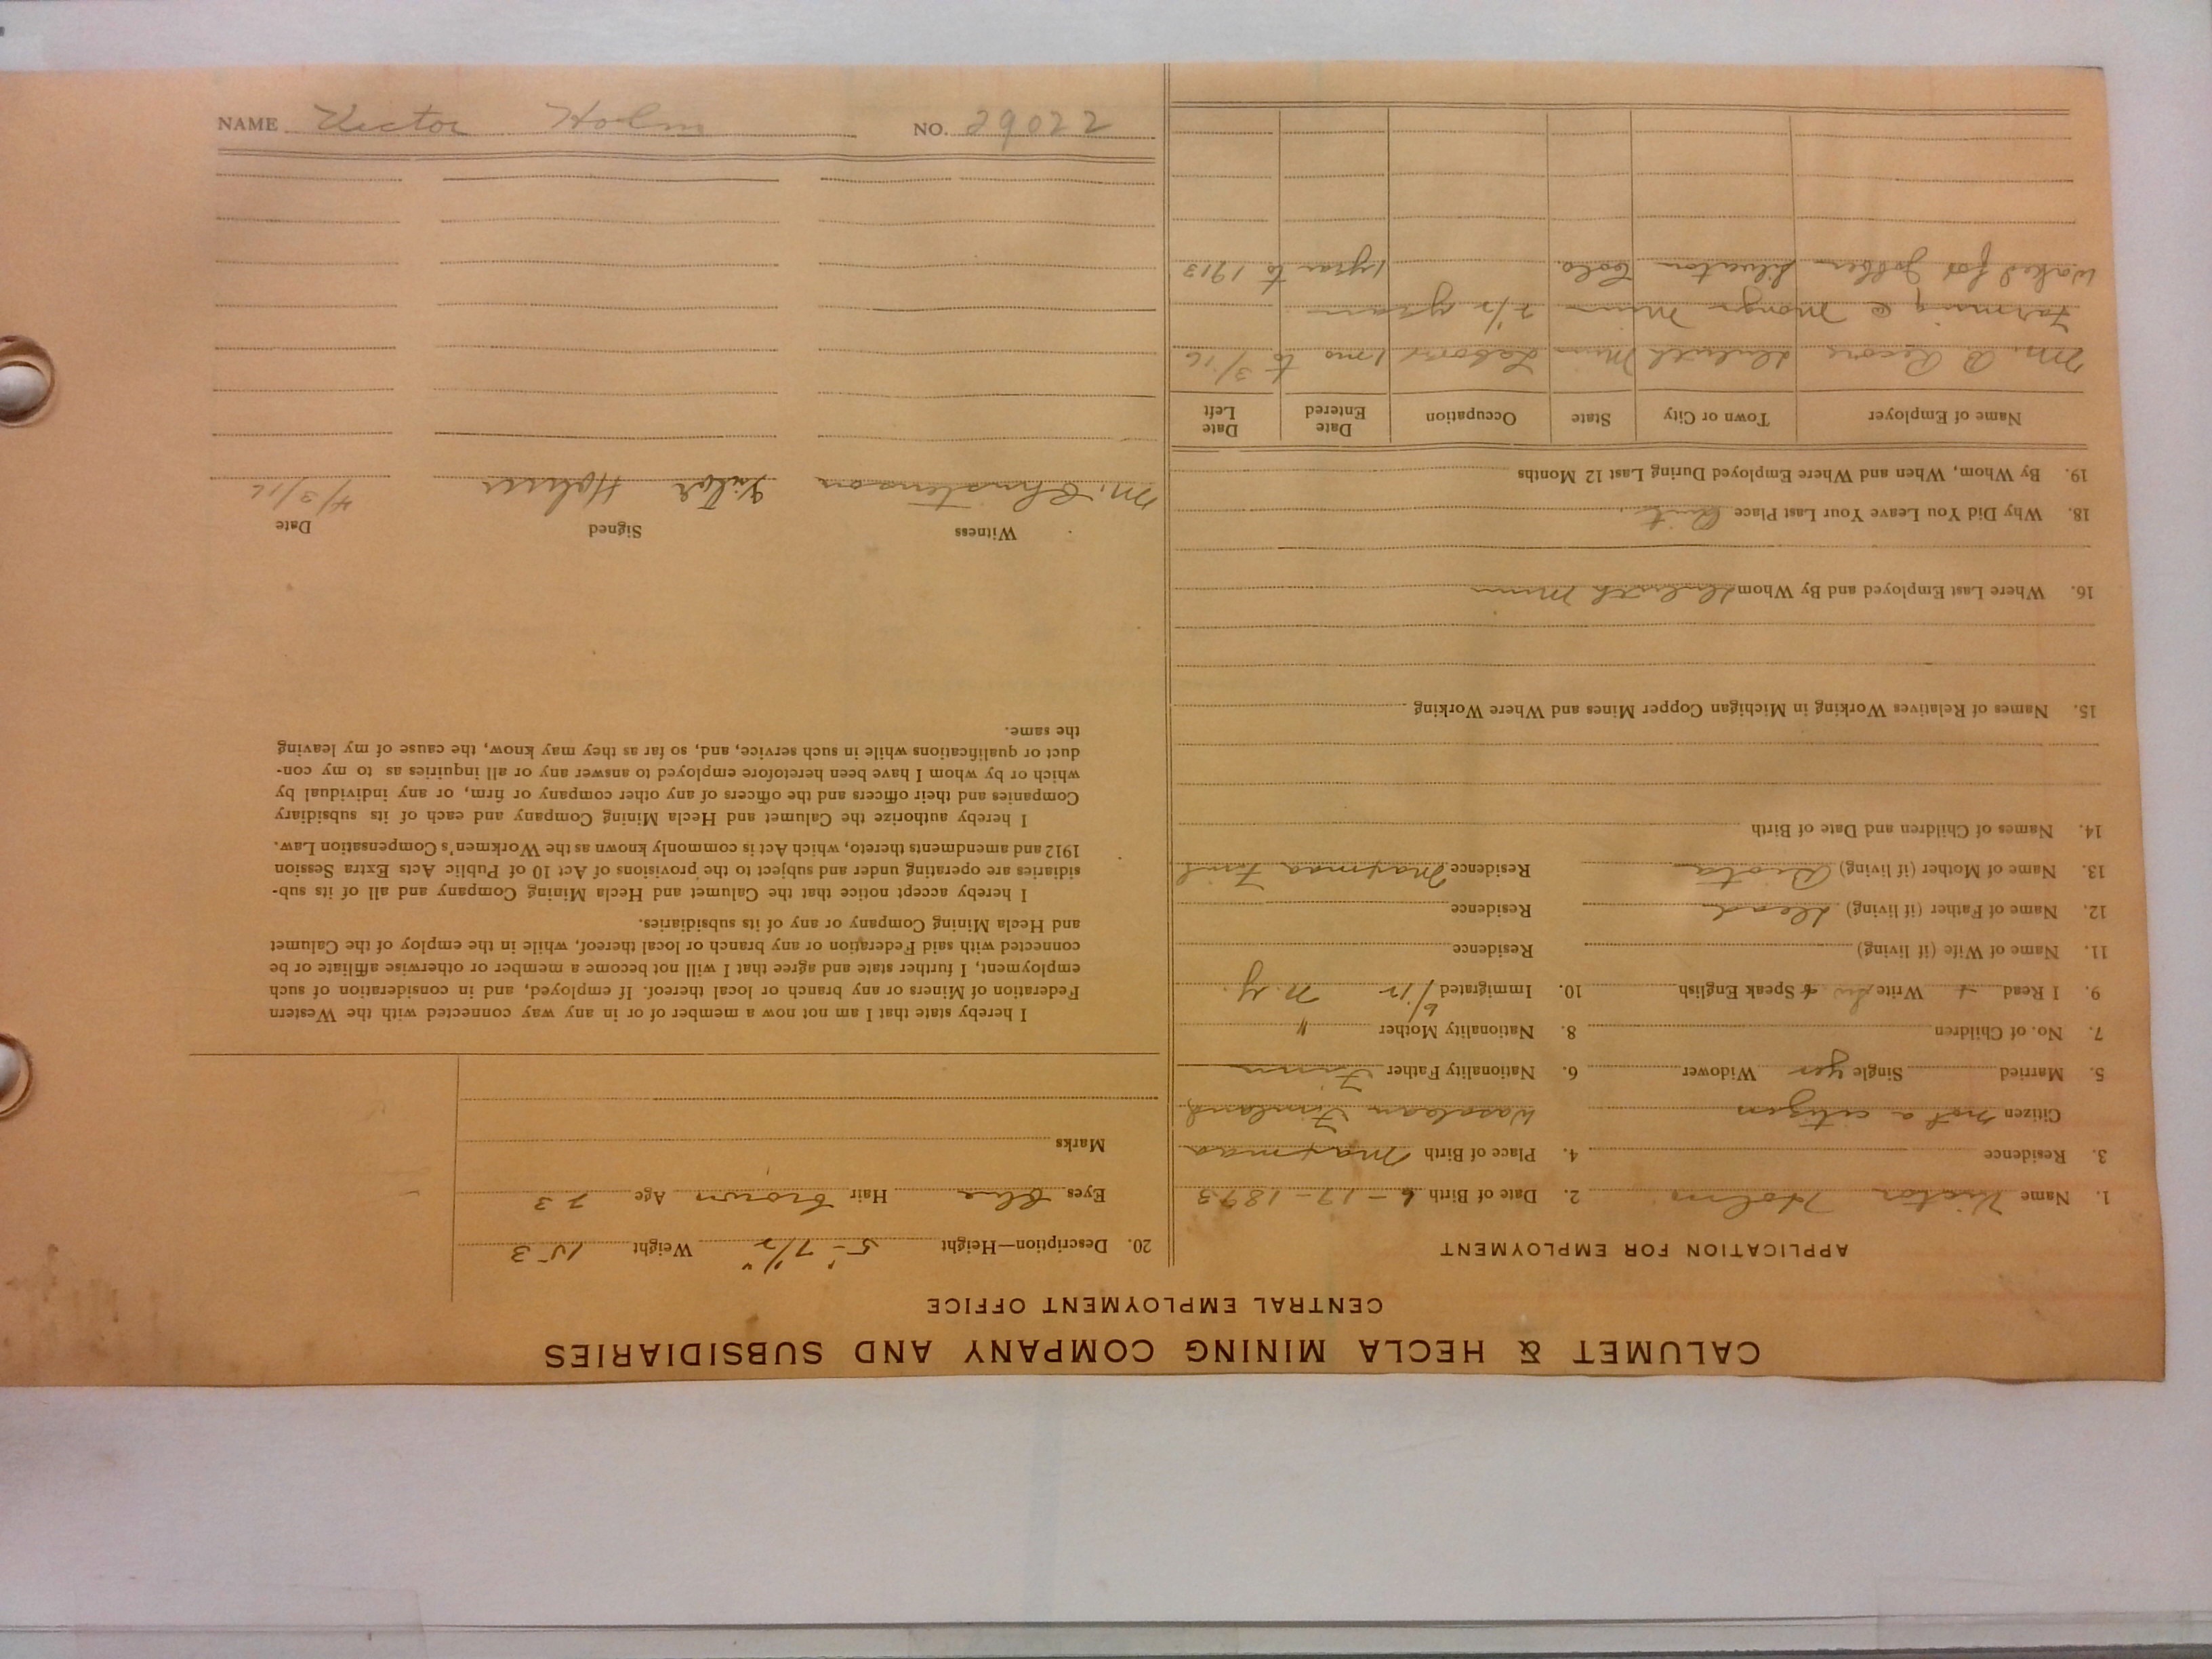 CALUMET & HECLA MINING COMPANY AND SUBSIDIARIES
CENTRAL EMPLOYMENT OFFICE
APPLICATION FOR EMPLOYMENT
1. Name Victor Holm 2. Date of Birth 6-17-1893
3. Residence 4. Place of Birth Maxmaa
Citizen not a citizen Wasalaan Finland
5. Married Single yes Widower 6. Nationality Father Finn
7. No. of Children 8. Nationality Mother "
9. I Read + Write + Speak English 10. Immigrated 6/12 N.Y.
11. Name of Wife (if living) Residence
12. Name of Father (if living) Dead Residence
13. Name of Mother (if living) Residence Maxmaa Finl
14. Names of Children and Date of Birth
15. Names of Relatives Working in Michigan Copper Mines and Where Working
16. Where Last Employed and By Whom Duluth Minn
18. Why Did You Leave Your Last Place Quit
19. By Whom, When and Where Employed During Last 12 Months
Name of Employer Town or City State Occupation Date Entered Date Left
Duluth Minn Labor 1 mo to 3/16
Farming Minn 2 1/2 years
Worked for Jobber Silverton Colo. 1 year to 1913
20. Description—Height 5' - 7 1/2" Weight 153
Eyes Blue Hair Brown Age 23
Marks
I hereby state that I am not now a member of or in any way connected with the Western
Federation of Miners or any branch or local thereof. If employed, and in consideration of such
employment, I further state and agree that I will not become a member or otherwise affiliate or be
connected with said Federation or any branch or local thereof, while in the employ of the Calumet
and Hecla Mining Company or any of its subsidiaries.
I hereby accept notice that the Calumet and Hecla Mining Company and all of its sub-
sidiaries are operating under and subject to the provisions of Act 10 of Public Acts Extra Session
1912 and amendments thereto, which Act is commonly known as the Workmen's Compensation Law.
I hereby authorize the Calumet and Hecla Mining Company and each of its subsidiary
Companies and their officers and the officers of any other company or firm, or any individual by
which or by whom I have been heretofore employed to answer any or all inquiries as to my con-
duct or qualifications while in such service, and, so far as they may know, the cause of my leaving
the same.
Witness Signed Date
M. Christenson Victor Holm 4/3/16
NAME Victor Holm NO. 29022